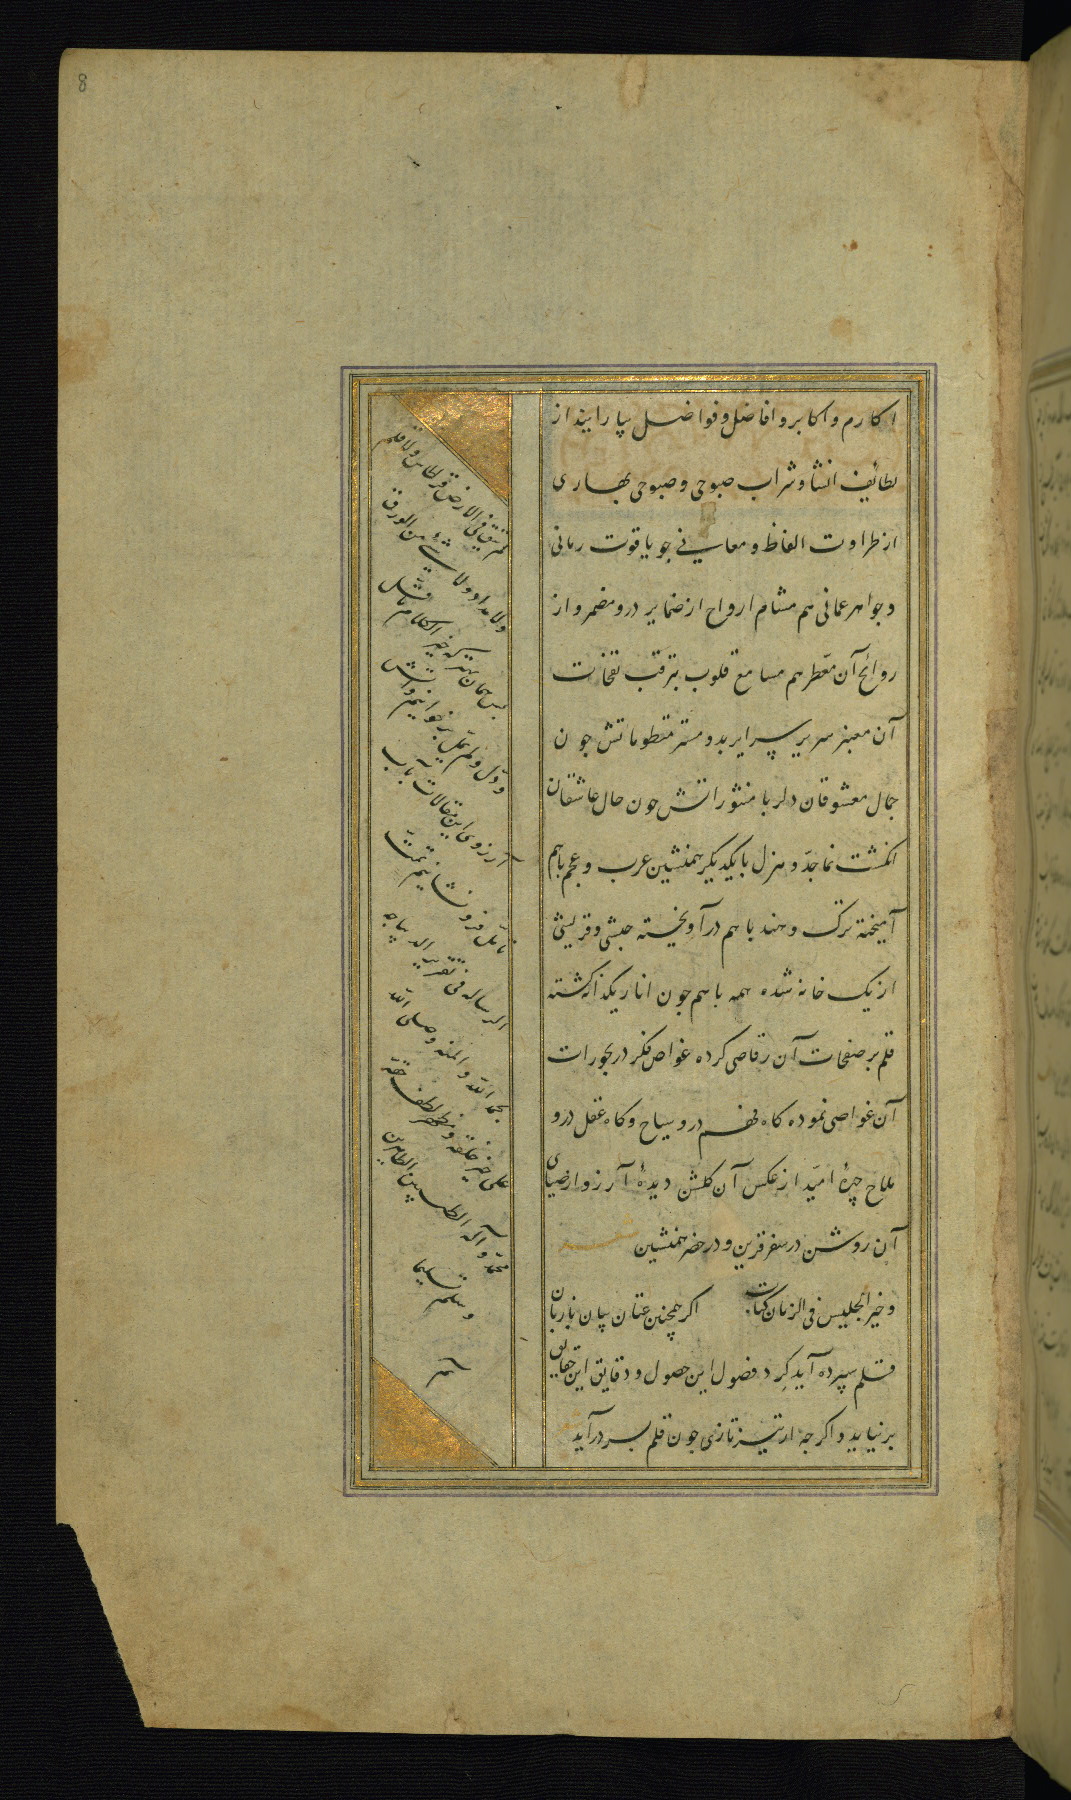 8
اکارم و اکابر و افاضل و فواضل بیارایند از
لطائف انشا و شراب صبوحی و صبوحی بهاری
از طراوت الفاظ و معانی جو یاقوت رمانی
و جواهر عمانی هم مشام ارواح از ضمایر درو مضمر و از
روائح آن معطر هم مسامع قلوب بترقب نفخات
آن معبنر سریر سرایر بدو مستتر منظوماتش جون
جمال معشوقان دلربا منثوراتش جون حال عاشقان
انکشت نما جدّ و هزل بایکدیکر همنشین عرب و عجم باهم
آمیخته ترک و هند باهم درآویخته حبشی و قریشی
از یک خانه شده همه باهم جون انار یکدانه کشته
قلم بر صفحات آن رقاصی کرده غواص فکر در بحورات
آن غواصی نموده کاه فهم درو سیاح و کاه عقل درو
ملاح چهرهٔ امیّد از عکس آن کلشن دیدهٔ آرزو از ضیای
آن روشن در سفر قرین و در حضر همنشین شعر
و خیر الجلیس فی الزمان کتاب اکر همچنین عنان بیان با زبان
قلم سپرده آید کِرد فضول این حصول و دقایق این حقایق
بر نیاید و اکرجه از تیزتازی جون قلم بسر درآید
لم یبق فی الارض قرطاس ولا قلم
ولا مداد ولا شیء من الورق
پس همان بهتر که خیر الکلام ما قل
و دل و لم یمل
آرزوی این مقالات باب
الرساله فی تقریر الدیباجه
بحمد الله والمنه وصلی الله
علی خیر خلقه و مظهر لطف حقه
محمد و آله الطیبین الطاهرین
وسلم تسلیما
تم